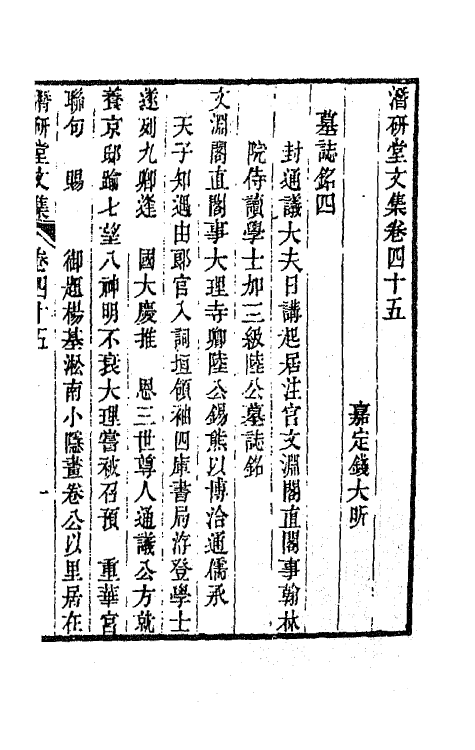 潛研堂文集卷四十五
嘉定錢大昕
墓誌銘四
封通議大夫日講起居注官文淵閣直閣事翰林
院侍讀學士加三級陸公墓誌銘
文淵閣直閣事大理寺卿陸公錫熊以博洽通儒承
天子知遇由郎官入詞垣領袖四庫書局洊登學士
遂列九卿逢 國大慶推 恩三世尊人通議公方就
養京邸踰七望八神明不衰大理嘗被召預 重華宮
聯句 賜 御題楊基淞南小隱畫卷公以里居在
潛研堂文集 卷四十五 一